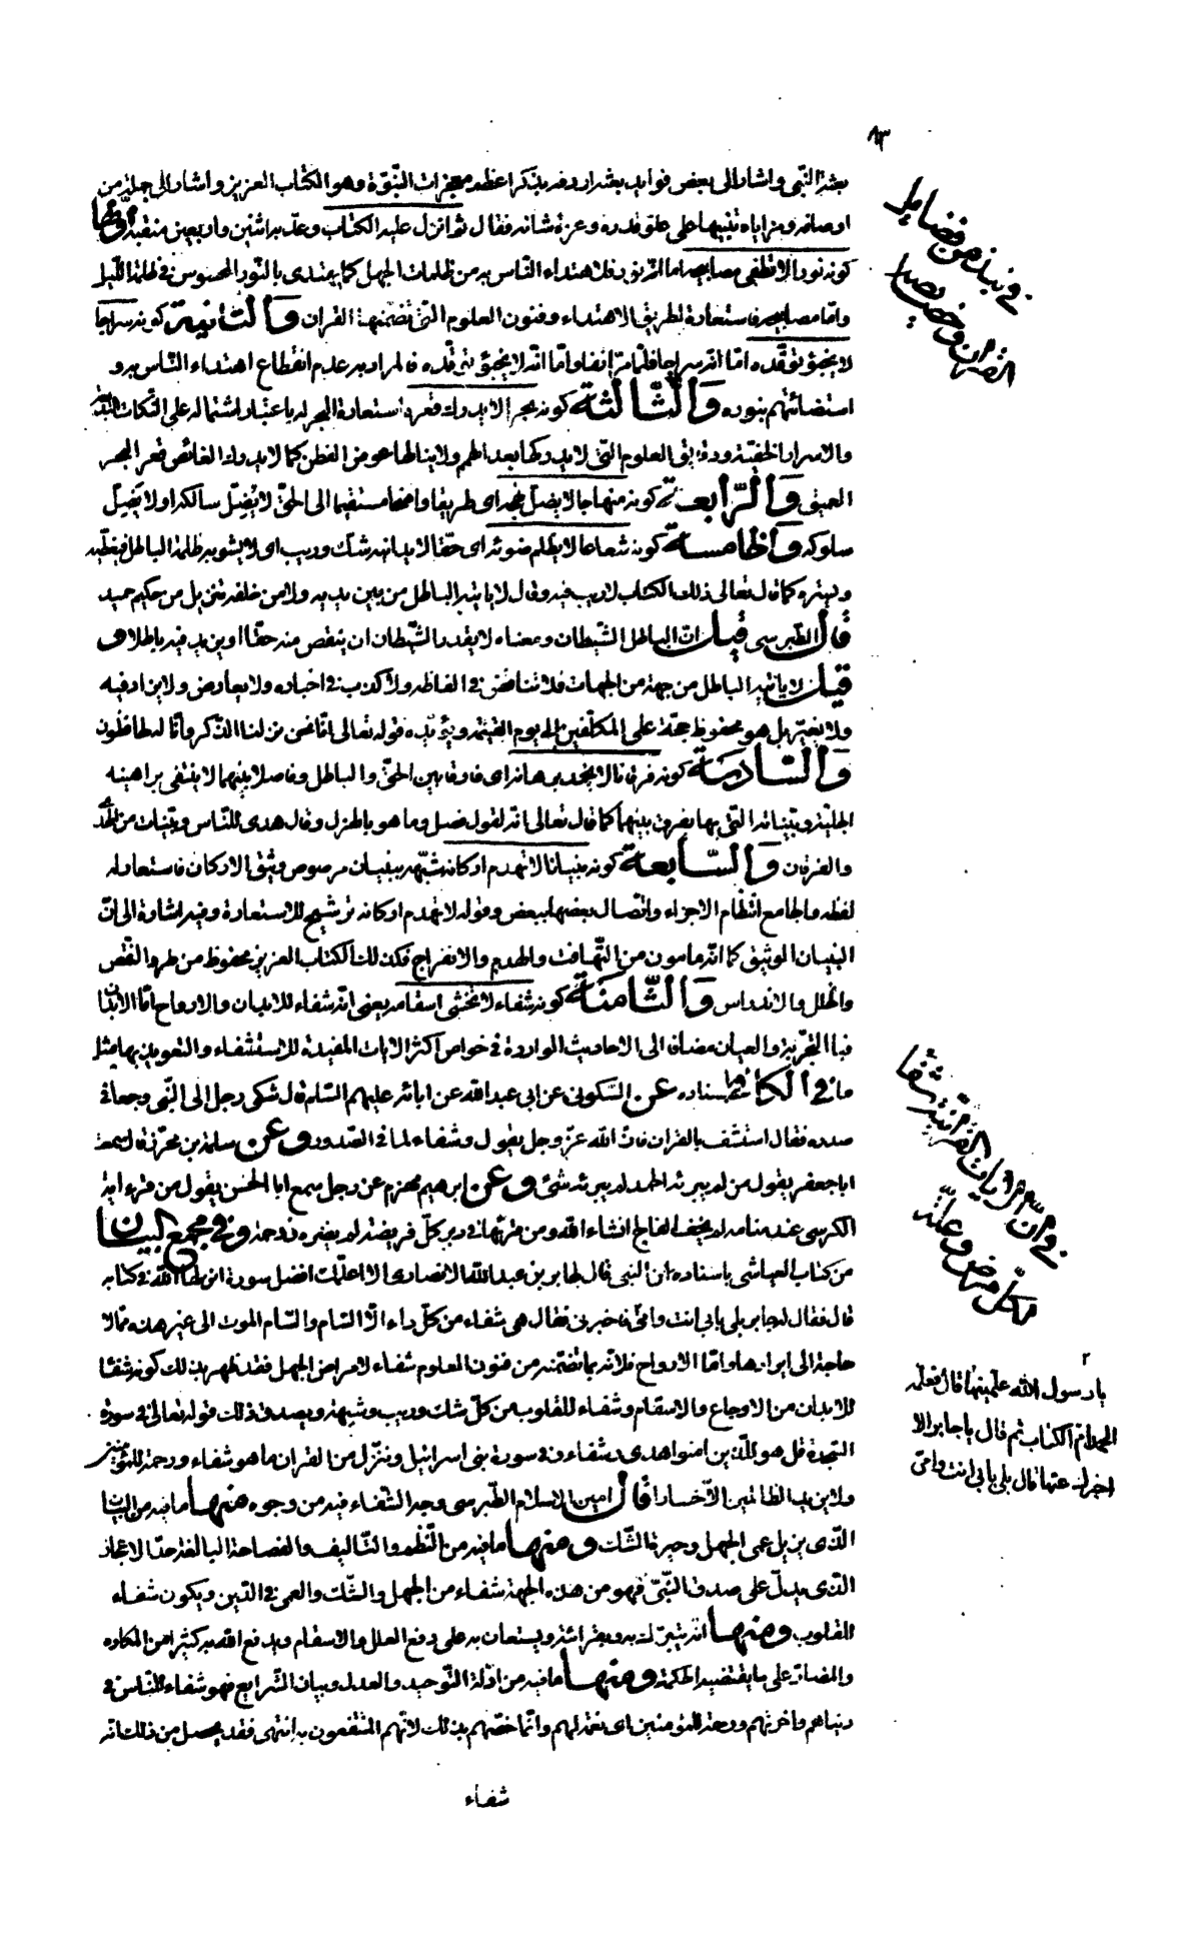 ٨٣
بعثة النبي واشار الى بعض فوايد بعثته اردفه بذكر اعظم معجزات النبوّة وهو الكتاب العزيز واشار الى جملة من
اوصافه ومزاياه تنبيها على علوّ قدره وعزة شانه فقال ثم انزل عليه الكتاب وعدّ به اثنين واربعين منقبة اوّلها
كونه نورا لا تطفى مصابيحه اما انّه نور فلاهتداء الناس به من ظلمات الجهل كما يهتدى بالنّور المحسوس في ظلمة اللّيل
وامّا مصابيحه فاستعارة لطريق الاهتداء وفنون العلوم التي تضمّنها القران والثانية كونه سراجا
لا يخبؤ توقّده امّا انّه سراجا فلما مرّ انفا وامّا انّه لا يخبؤ توقّده فالمراد به عدم انقطاع اهتداء النّاس به و
استضائتهم بنوره والثّالثة كونه بحرا لا يدرك قعره استعارة البحر له باعتبار اشتماله على النّكات البديعة
والاسرار الخفيّة ودقايق العلوم التي لا يدركها بعد الهمم ولا ينالها غوص الفطن كما لا يدرك الغائص قعر البحر
العميق والرّابعة كونه منهاجا لا يضلّ نهجه اى طريقا واضحا مستقيما الى الحقّ لا يضلّ سالكه اولا يضلّ
سلوكه والخامسة كونه شعاعا لا يظلم ضوئه اى حقّا لا يدانيه شك وريب اى لا يشوبه ظلمة الباطل فيغطّيه
ويستره كما قال تعالى ذلك الكتاب لا ريب فيه وقال لا ياتيه الباطل من بين يديه ولا من خلفه تنزيل من حكيم حميد
قال الطبرسى قيل انّ الباطل الشّيطان ومعناه لا يقدر الشّيطان ان ينقص منه حقّا او يزيد فيه باطلا و
قيل لا ياتيه الباطل من جهة من الجهات فلا تناقض في الفاظه ولا كذب في اخباره ولا يعارض ولا يزاد فيه
ولا يغيّر بل هو محفوظ حجّة على المكلّفين الى يوم القيمة ويؤيّده قوله تعالى انّا نحن نزّلنا الذّكر وانّا له لحافظون
والسّادسة كونه فرقانا لا يخمد برهانه اى فارقا بين الحقّ والباطل وفاصلا بينهما لا ينتفى براهينه
الجليّة وبيّناته التي بها يفرق بينهما كما قال تعالى انّه لقول فصل وما هو بالهزل وقال هدى للنّاس وبيّنات من الهدى
والفرقان والسّابعة كونه بنيانا لا تهدم اركانه شبّهه ببنيان مرصوص وثيق الاركان فاستعار له
لفظه والجامع انتظام الاجزاء واتّصال بعضها ببعض وقوله لا تهدم اركانه ترشيح للاستعارة وفيه اشارة الى انّ
البنيان الوثيق كما انّه مامون من التّهافت والهدم والانفراج فكذلك الكتاب العزيز محفوظ من طرو النّقص
والخلل والاندراس والثّامنة كونه شفاء لا تخشى اسقامه يعنى انّه شفاء للابدان والارواح امّا الابدان
فبالتّجربة والعيان مضافا الى الاحاديث الواردة في خواص اكثر الايات المفيدة للاستشفاء والتعويذ بها مثل
ما في الكافي باسناده عن السّكونى عن ابى عبد الله عن ابائه عليهم السّلام قال شكى رجل الى النّبى وجعا في
صدره فقال استشف بالقران فانّ الله عزّ وجل يقول وشفاء لما في الصّدور وعن سلمة بن محرز قال سمعت
ابا جعفر يقول من لم يبرئه الحمد لم يبرئه شئ وعن ابرهيم مهزم عن رجل سمع ابا الحسن يقول من قرء اية
الكرسى عند منامه لم يخف الفالج انشاء الله ومن قرئها في دبر كلّ فريضة لم يضره ذو حمة وفي مجمع البيان
من كتاب العياشى باسناده ان النبى قال لجابر بن عبد الله الانصارى الا اعلّمك افضل سورة انزلها الله في كتابه
قال فقال له جابر بلى بابى انت وامّى فاخبرنى فقال هى شفاء من كلّ داء الّا السّام والسّام الموت الى غير هذه ممّا لا
حاجة الى ايرادها وامّا الارواح فلانّه بما تضمّنه من فنون العلوم شفاء لامراض الجهل فقد ظهر بذلك كونه شفاء
للابدان من الاوجاع والاسقام وشفاء للقلوب من كلّ شك وريب وشبهة ويصدق ذلك قوله تعالى في سورة
السّجدة قل هو للّذين امنوا هدى وشفاء وفي سورة بنى اسرائيل وننزّل من القران ما هو شفاء ورحمة للمؤمنين
ولا يزيد الظالمين الّا خسارا قال امين الاسلام الطّبرسى وجه الشّفاء فيه من وجوه منها ما فيه من البيان
الّذى يزيل عمى الجهل وحيرة الشّك ومنها ما فيه من النّظم والتّاليف والفصاحة البالغة حدّ الاعجاز
الّذى يدلّ على صدق النّبىّ فهو من هذه الجهة شفاء من الجهل والشّك والعمى في الدّين ويكون شفاء
للقلوب ومنها انّه يتبرّك به وبقرائته ويستعان به على دفع العلل والاسقام ويدفع الله به كثيرا من المكاره
والمضارّ على ما يقتضيه الحكمة ومنها ما فيه من ادلّة التّوحيد والعدل وبيان الشّرايع فهو شفاء للنّاس في
دنياهم واخرتهم ورحمة للمؤمنين اى نعمة لهم وانّما خصّهم بذلك لانّهم المنتفعون به انتهى فقد يحصل من ذلك انّه
شفاء
في نبذ من فضايل
القران وخصايصه
في انّ الايات القرانية شفاء
لكلّ مرض وعلّة
٢
يا رسول الله علّمنيها قال فعلّمه
الحمد امّ الكتاب ثم قال يا جابر الا
اخبرك عنها قال بلى بابى انت وامّى